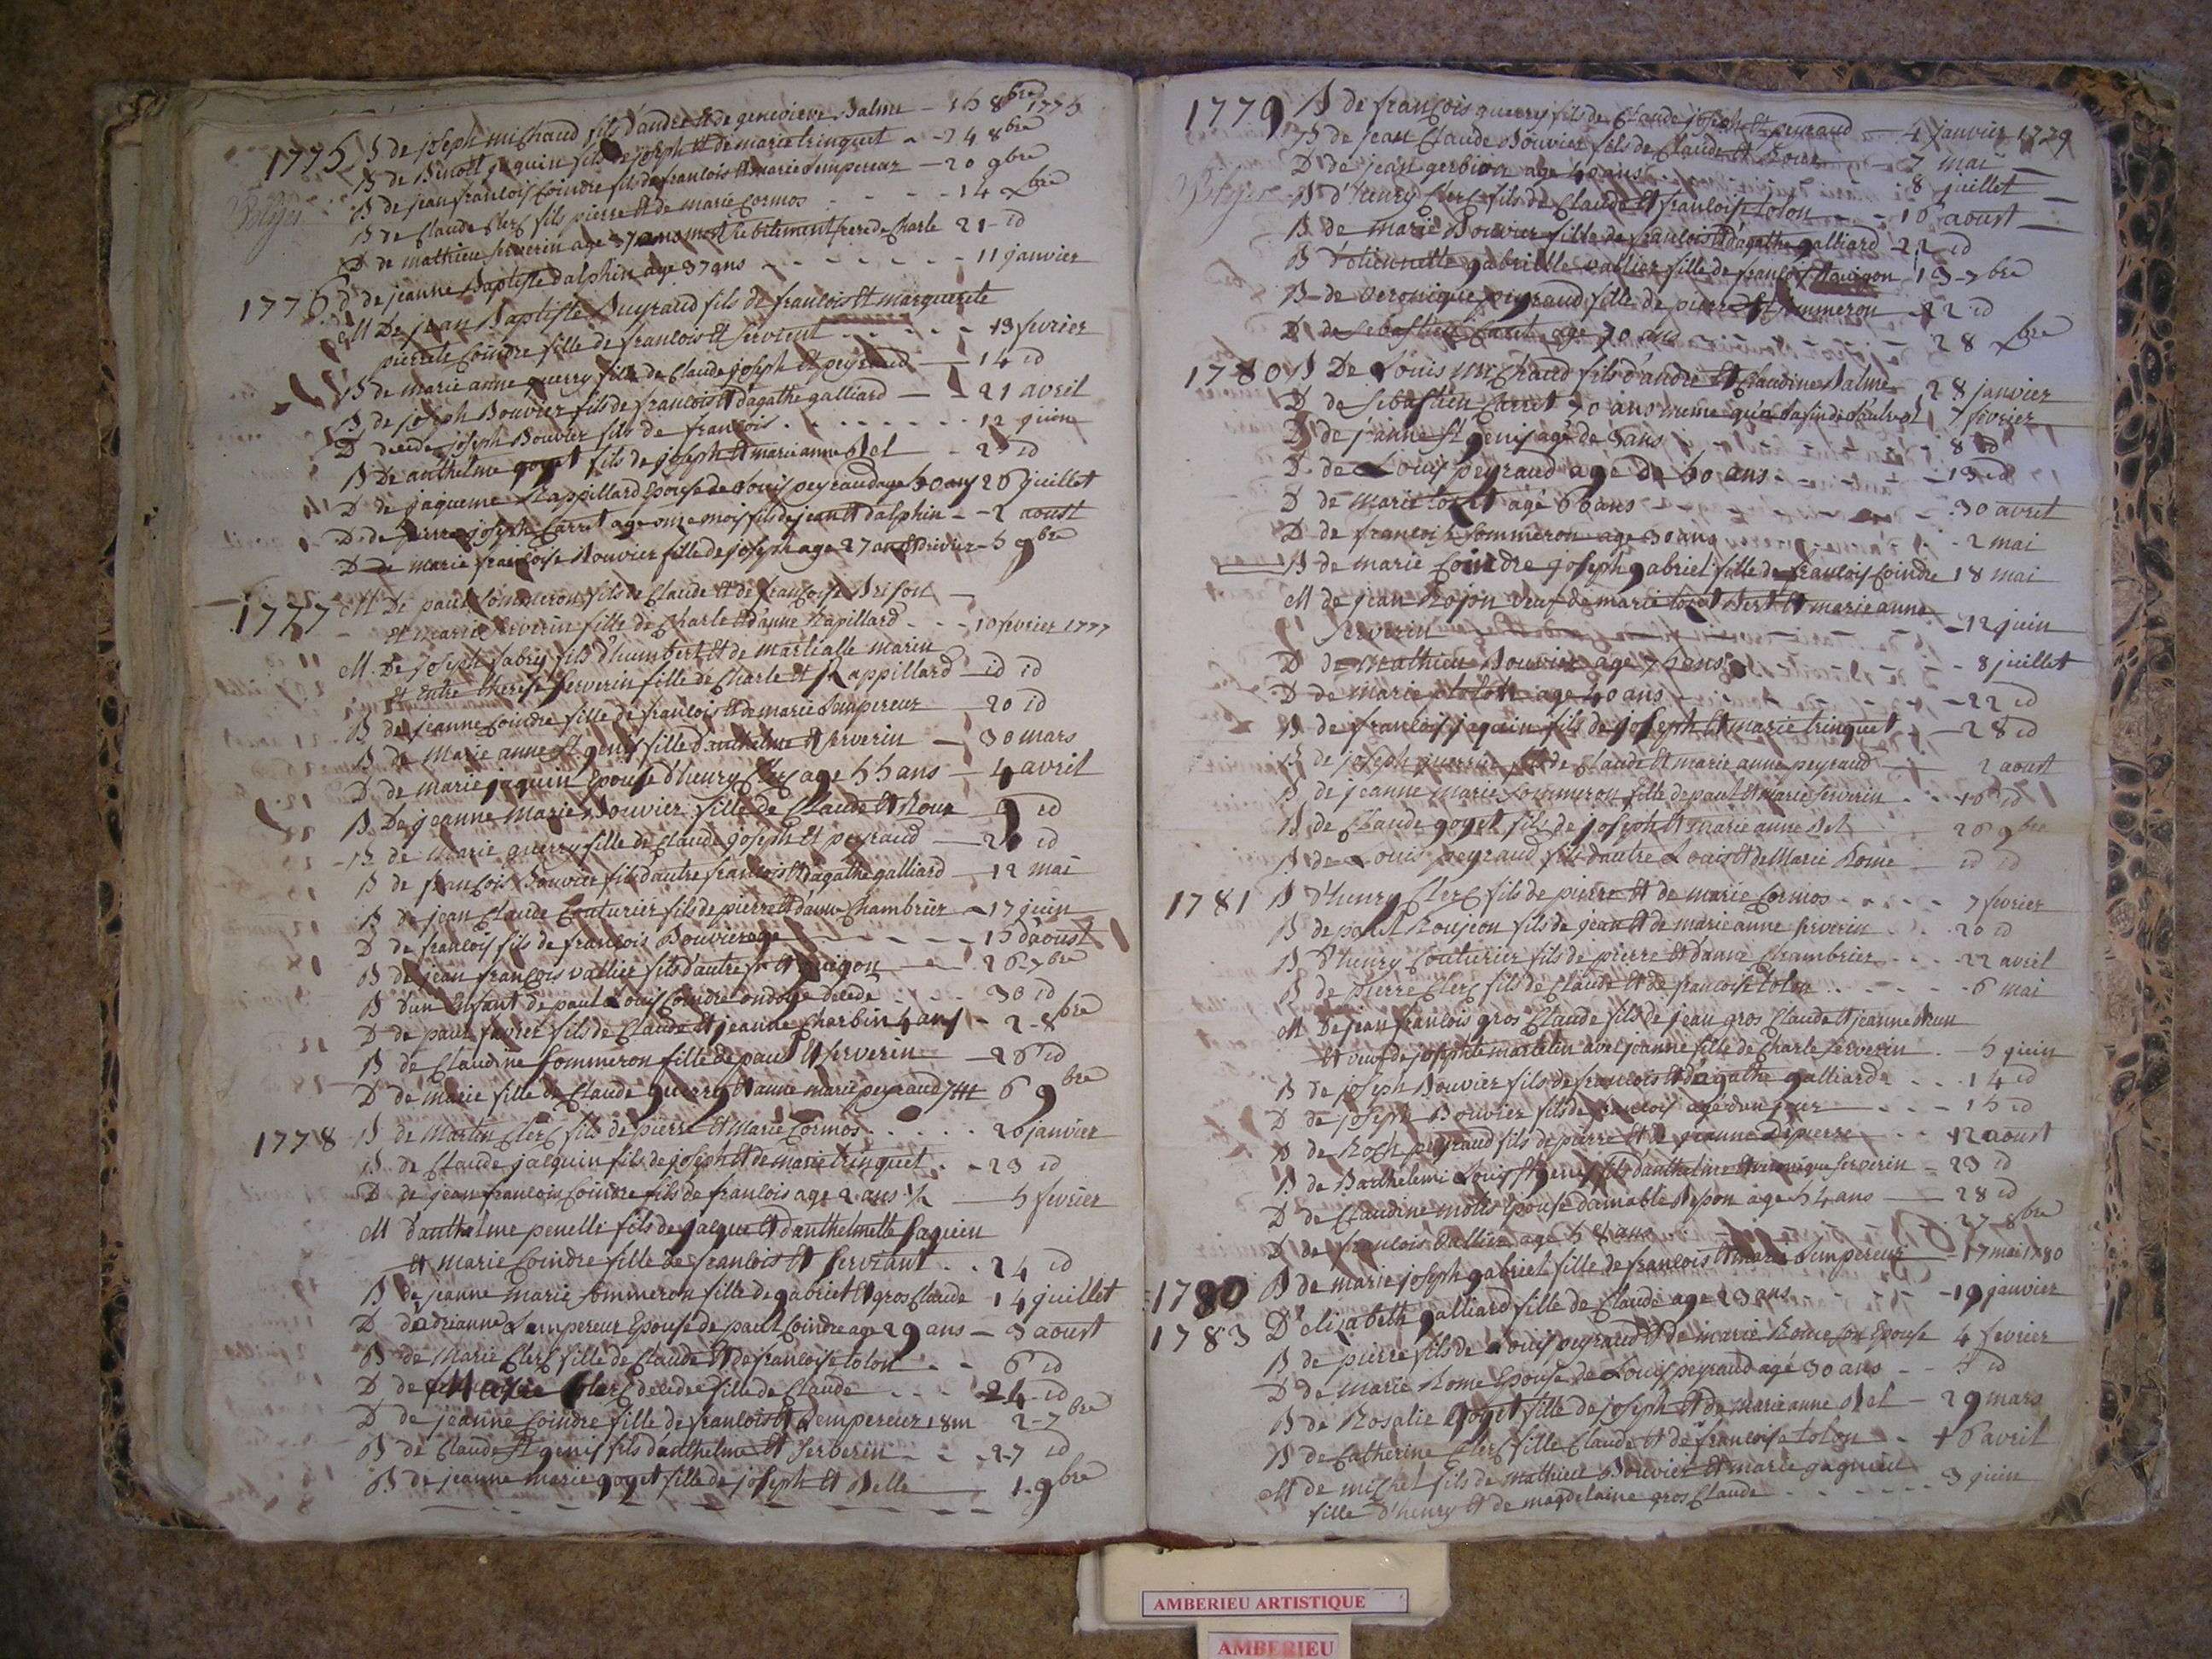 1775 B de joseph michaud fils d'andre et de genevieve Balme - 15 8bre 1775
B de Benoit jaquin fils de joseph et de marie trinquet - 24 8bre
B de jean francois Coindre fils de francois et marie Lempereur - 20 9bre
B de Claude Clerc fils pierre et de marie Cormos - 14 xbre
D de mathieu serverin age 37 ans mort subitement frere de Charle 21 - id
1776 D de jeanne Baptiste dalphin age 37 ans - 11 janvier
M De jean Baptiste Peyraud fils de francois et marguerite
pierrete Coindre fille de francois et servient - 13 fevrier
B de marie anne guerry fille de Claude joseph et peyraud - 14 id
B de joseph Bouvier fils de francois et d'agathe galliard - 21 avril
D decede joseph Bouvier fils de francois - 12 juin
B De anthelme goyet fils de joseph et marie anne Bel - 25 id
D de jaqueme Rappillard Epouse de Louis peyraud age 50 ans 26 juillet
D de pierre joseph Carret age onze mois fils de jean et dalphin - 2 aoust
D de marie francoise Bouvier fille de joseph age 27 ans - 5 9bre
1777 M De paul Sommeron fils de Claude et de francoise Brison
et marie serverin fille de Charle et d'anne Rapillard - 10 fevrier 1777
M. De joseph fabry fils d'humbert et de martialle marin
et Entre therese serverin fille de Charle et Rappillard - id id
B de jeanne Coindre fille de francois et de marie Lempereur - 20 id
B de Marie anne st genis fille d'anthelme et serverin - 30 mars
D de marie jaquin Epouse d'henry Clerc age 55 ans - 4 avril
B De jeanne Marie Bouvier fille de Claude et Roux - 9 id
B de Marie guerry fille de Claude joseph et peyraud - id
B de francois Bouvier fils d'autre francois et d'agathe galliard - 12 mai
B de jean Claude Couturier fils de pierre et d'anne Chambrier - 17 juin
D de francois fils de francois Bouvier age - 15 d'aoust
B de jean francois vallier fils d'autre fr et guigon - 26 - 7bre
B d'un Enfant de paul Louis Coindre ondoye decede - 30 id
D de paul favier fils de Claude et jeanne Charbin 4 ans - 2 - 8bre
B de Claudine Sommeron fille de paul et serverin - 26 id
D de marie fille de Claude guerry et anne marie peyraud 7 m 6 9bre
1778 B de Martin Clerc fils de pierre et Marie Cormos - 26 janvier
B de Claude jacquin fils de joseph et de marie trinquet - 23 id
D de jean francois Coindre fils de francois age 2 ans 1/2 - 5 fevrier
M d'anthelme penelle fils de jacque et d'anthelmette jaquin
et marie Coindre fille de francois et servient - 24 id
B de jeanne marie Sommeron fille de gabriel et gros Claude - 14 juillet
D d'adrianne Lempereur Epouse de paul Coindre age 29 ans - 3 aoust
B de Marie Clerc fille de Claude et de francoise tolon - 6 id
D de Marie Clerc decedee fille de Claude - 24 - id
D de jeanne Coindre fille de francois et Lempereur 18 m 2 - 7bre
B de Claude st genis fils d'anthelme et serverin - 27 id
B de jeanne marie goyet fille de joseph et Belle - 1 - 9bre
1779 B de francois guerry fils de Claude joseph et peyraud - 4 janvier 1779
B de jean Claude Bouvier fils de Claude et Roux - 7 mai
D de jean gerbion age 40 ans - 8 juillet
B d'henry Clerc fils de Claude et francoise tolon - 16 aoust
B de marie Bouvier fille de francois et d'agathe galliard - 22 id
B d'etiennette gabrielle vallier fille de francois et guigon 13 - 7bre
B de veronique peyraud fille de pierre et Sommeron - 22 id
D de sebastien Carret age 70 ans 28 xbre
1780 B De Louis michaud fils d'andre et Claudine Balme - 28 janvier
D de sebastien Carret 70 ans 7 fevrier
D de jeanne st genis age de 8 ans - 8 id
D de Louis peyraud age de 50 ans - 13 id
D de marie age 66 ans - 30 avril
D de francoise Sommeron age 30 ans - 2 mai
B de marie Coindre joseph gabriel fille de francois Coindre 18 mai
M de jean Rojon veuf de marie et marie anne
serverin - 12 juin
D de mathieu Bouvier age 75 ans - 8 juillet
D de marie tolon age 40 ans - 22 id
B de francois jaquin fils de joseph et marie trinquet - 28 id
B de joseph guerry fils de Claude et marie anne peyraud - 2 aoust
B de jeanne marie Sommeron fille de paul et marie serverin - 16 id
B de Claude goyet fils de joseph et marie anne Bel 26 9bre
B de Louis peyraud fils d'autre Louis et de Marie Rome id id
1781 B d'henry Clerc fils de pierre et de marie Cormos - 7 fevrier
B de paul Roujon fils de jean et de marie anne serverin - 20 id
B d'henry Couturier fils de pierre et d'anne Chambrier - 22 avril
B de pierre Clerc fils de Claude et de francoise tolon - 6 mai
M De jean francois gros Claude fils de jean gros Claude et jeanne
et veuf de josephte martelin avec jeanne fille de Charle serverin - 5 juin
B de joseph Bouvier fils de francois et d'agathe galliard - 14 id
D de joseph Bouvier fils de francois age d'un jour - 15 id
D de Roch peyraud fils de pierre et de jeanne Depierre - 12 aoust
B de Barthelemi Louis st genis fils d'anthelme et veronique serverin - 23 id
D de Claudine Epouse d'aimable age 54 ans - 28 id
D de francois vallier age 58 ans 27 8bre
1780 B de marie joseph gabriel fille de francois et marie Lempereur - 17 mai 1780
1783 D d'elisabeth galliard fille de Claude age 23 ans - 19 janvier
B de pierre fils de Louis peyraud et de marie Rome son Epouse 4 fevrier
D de Marie Rome Epouse de Louis peyraud age 30 ans - 5 id
B de Rosalie goyet fille de joseph et de Marie anne Bel - 29 mars
B de Catherine Clerc fille Claude et de francoise tolon - + 6 avril
M de michel fils de mathieu Bouvier et marie jaquin
fille d'henry et de magdelaine gros Claude - 3 juin
AMBERIEU ARTISTIQUE
AMBERIEU